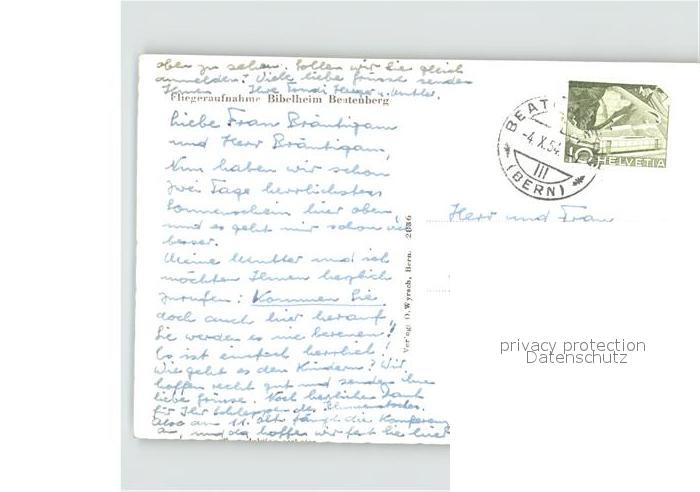 oben zu sehen. Sollen wir Sie gleich
anmelden? Viele liebe Grüsse senden
Ihnen Ihre Trudi u. Mutter.
Fliegeraufnahme Bibelheim Beatenberg
Liebe Frau Bräutigam
und Herr Bräutigam,
Nun haben wir schon
zwei Tage herrlichsten
Sonnenschein hier oben,
und es geht mir schon viel
besser.
Meine Mutter und ich
möchten Ihnen herzlich
zurufen: Kommen Sie
doch auch hier herauf,
Sie werden es nie bereuen!
Es ist einfach herrlich!
Wie geht es den Kindern? Wir
hoffen recht gut und senden ihnen
liebe Grüsse. Noch herzlichen Dank
für Ihr des Blumenstockes.
Also am 11. Okt. fängt die Konferenz
an, und da hoffen wir fest Sie hier
Verlag: O. Wyrsch, Bern. 2036
BEAT
-4.X.54
III
(BERN)
10
HELVETIA
Herr und Frau
privacy protection
Datenschutz